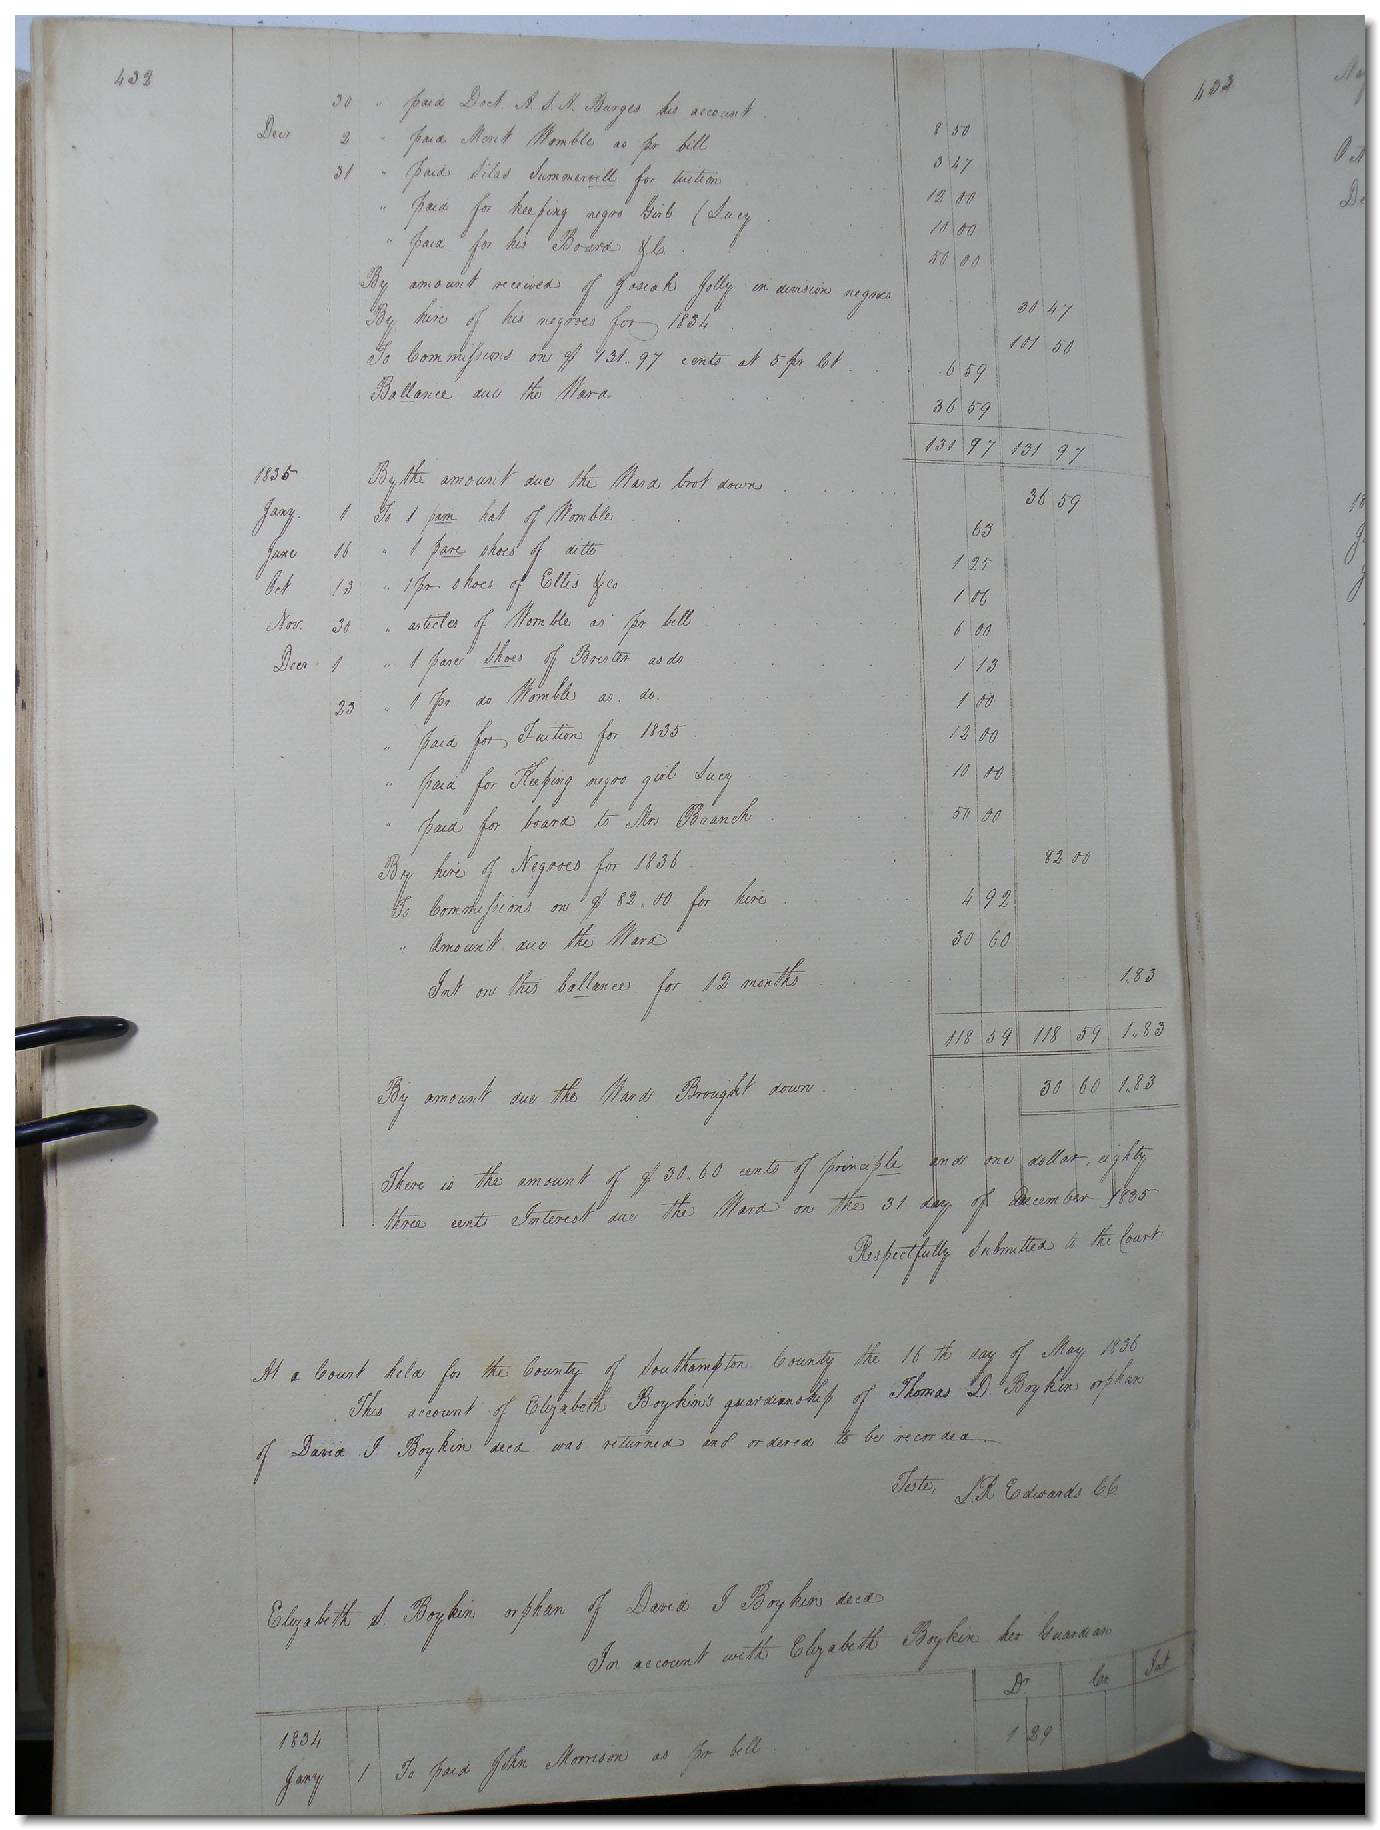 432
30 " paid Doct. A. S. H. Burges his account 8 50
Decr 2 " paid Merit Womble as pr bill 3 47
31 " paid Silas Summerell for tuition 12 00
" paid for keeping negro Girl (Lucy 10 00
" paid for his Board &c. 50 00
By amount received of Josiah Jolly in division negroes 30 47
By hire of his negroes for 1834 101 50
To Commissions on $ 131.97 cents at 5 pr Ct 6 59
Ballance due the Ward 36 59
131 97 131 97
1835 By the amount due the Ward brot down 36 59
Jany. 1 To 1 pam hat of Womble 63
June 16 " 1 pare shoes of ditto 1 25
Oct 13 " 1 pr shoes of Ellis & co 1 06
Nov. 30 " articles of Womble as pr bill 6 00
Decr 1 " 1 pare shoes of Brister as do 1 13
23 " 1 pr do Womble as. do. 1 00
" paid for Tuition for 1835 12 00
" paid for Keeping negro girl Lucy 10 00
" paid for board to Mrs Branch 50 00
By hire of Negroes for 1836 82 00
To Commissions on $ 82.00 for hire 4 92
" Amount due the Ward 30 60
Int on this ballance for 12 months 1.83
118 59 118 59 1.83
By amount due the Ward Brought down 30 60 1.83
There is the amount of $ 30.60 cents of principle and one dollar, eighty
three cents Interest due the Ward on the 31 day of December 1835
Respectfully Submitted to the Court
At a Court held for the County of Southampton County the 16 th day of May 1836
This account of Elizabeth Boykin's guardianship of Thomas D. Boykin orphan
of David J Boykin decd was returned and ordered to be recorded
Teste, L. R Edwards CC
Elizabeth S. Boykin orphan of David J Boykin decd
In account with Elizabeth Boykin her Guardian
Dr Cr Int
1834
Jany 1 To paid John Morrison as pr bill 1 29
433